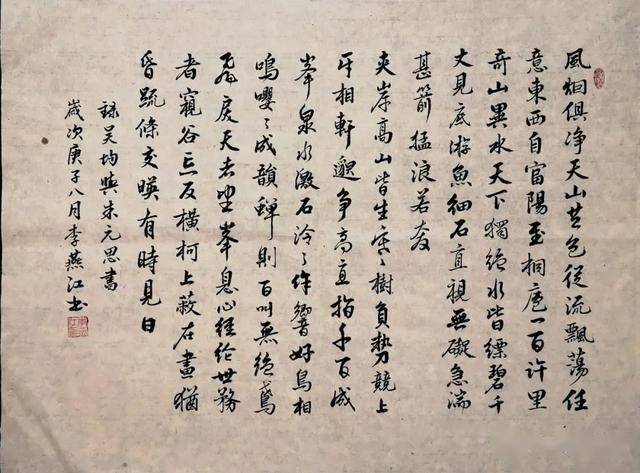 風烟俱净天山共色從流飄蕩任
意東西自富陽至桐廬一百許里
奇山異水天下獨絕水皆縹碧千
丈見底游魚細石直視無礙急湍
甚箭猛浪若奔
夾岸高山皆生寒樹負勢競上
互相軒邈争高直指千百成
峯泉水激石泠々作響好鳥相
鳴嚶々成韻蟬則百叫無絕鳶
飛戾天者望峯息心經綸世務
者窺谷忘反橫柯上蔽在晝猶
昏疏條交映有時見日
録吴均與朱元思書
歲次庚子八月李燕江书